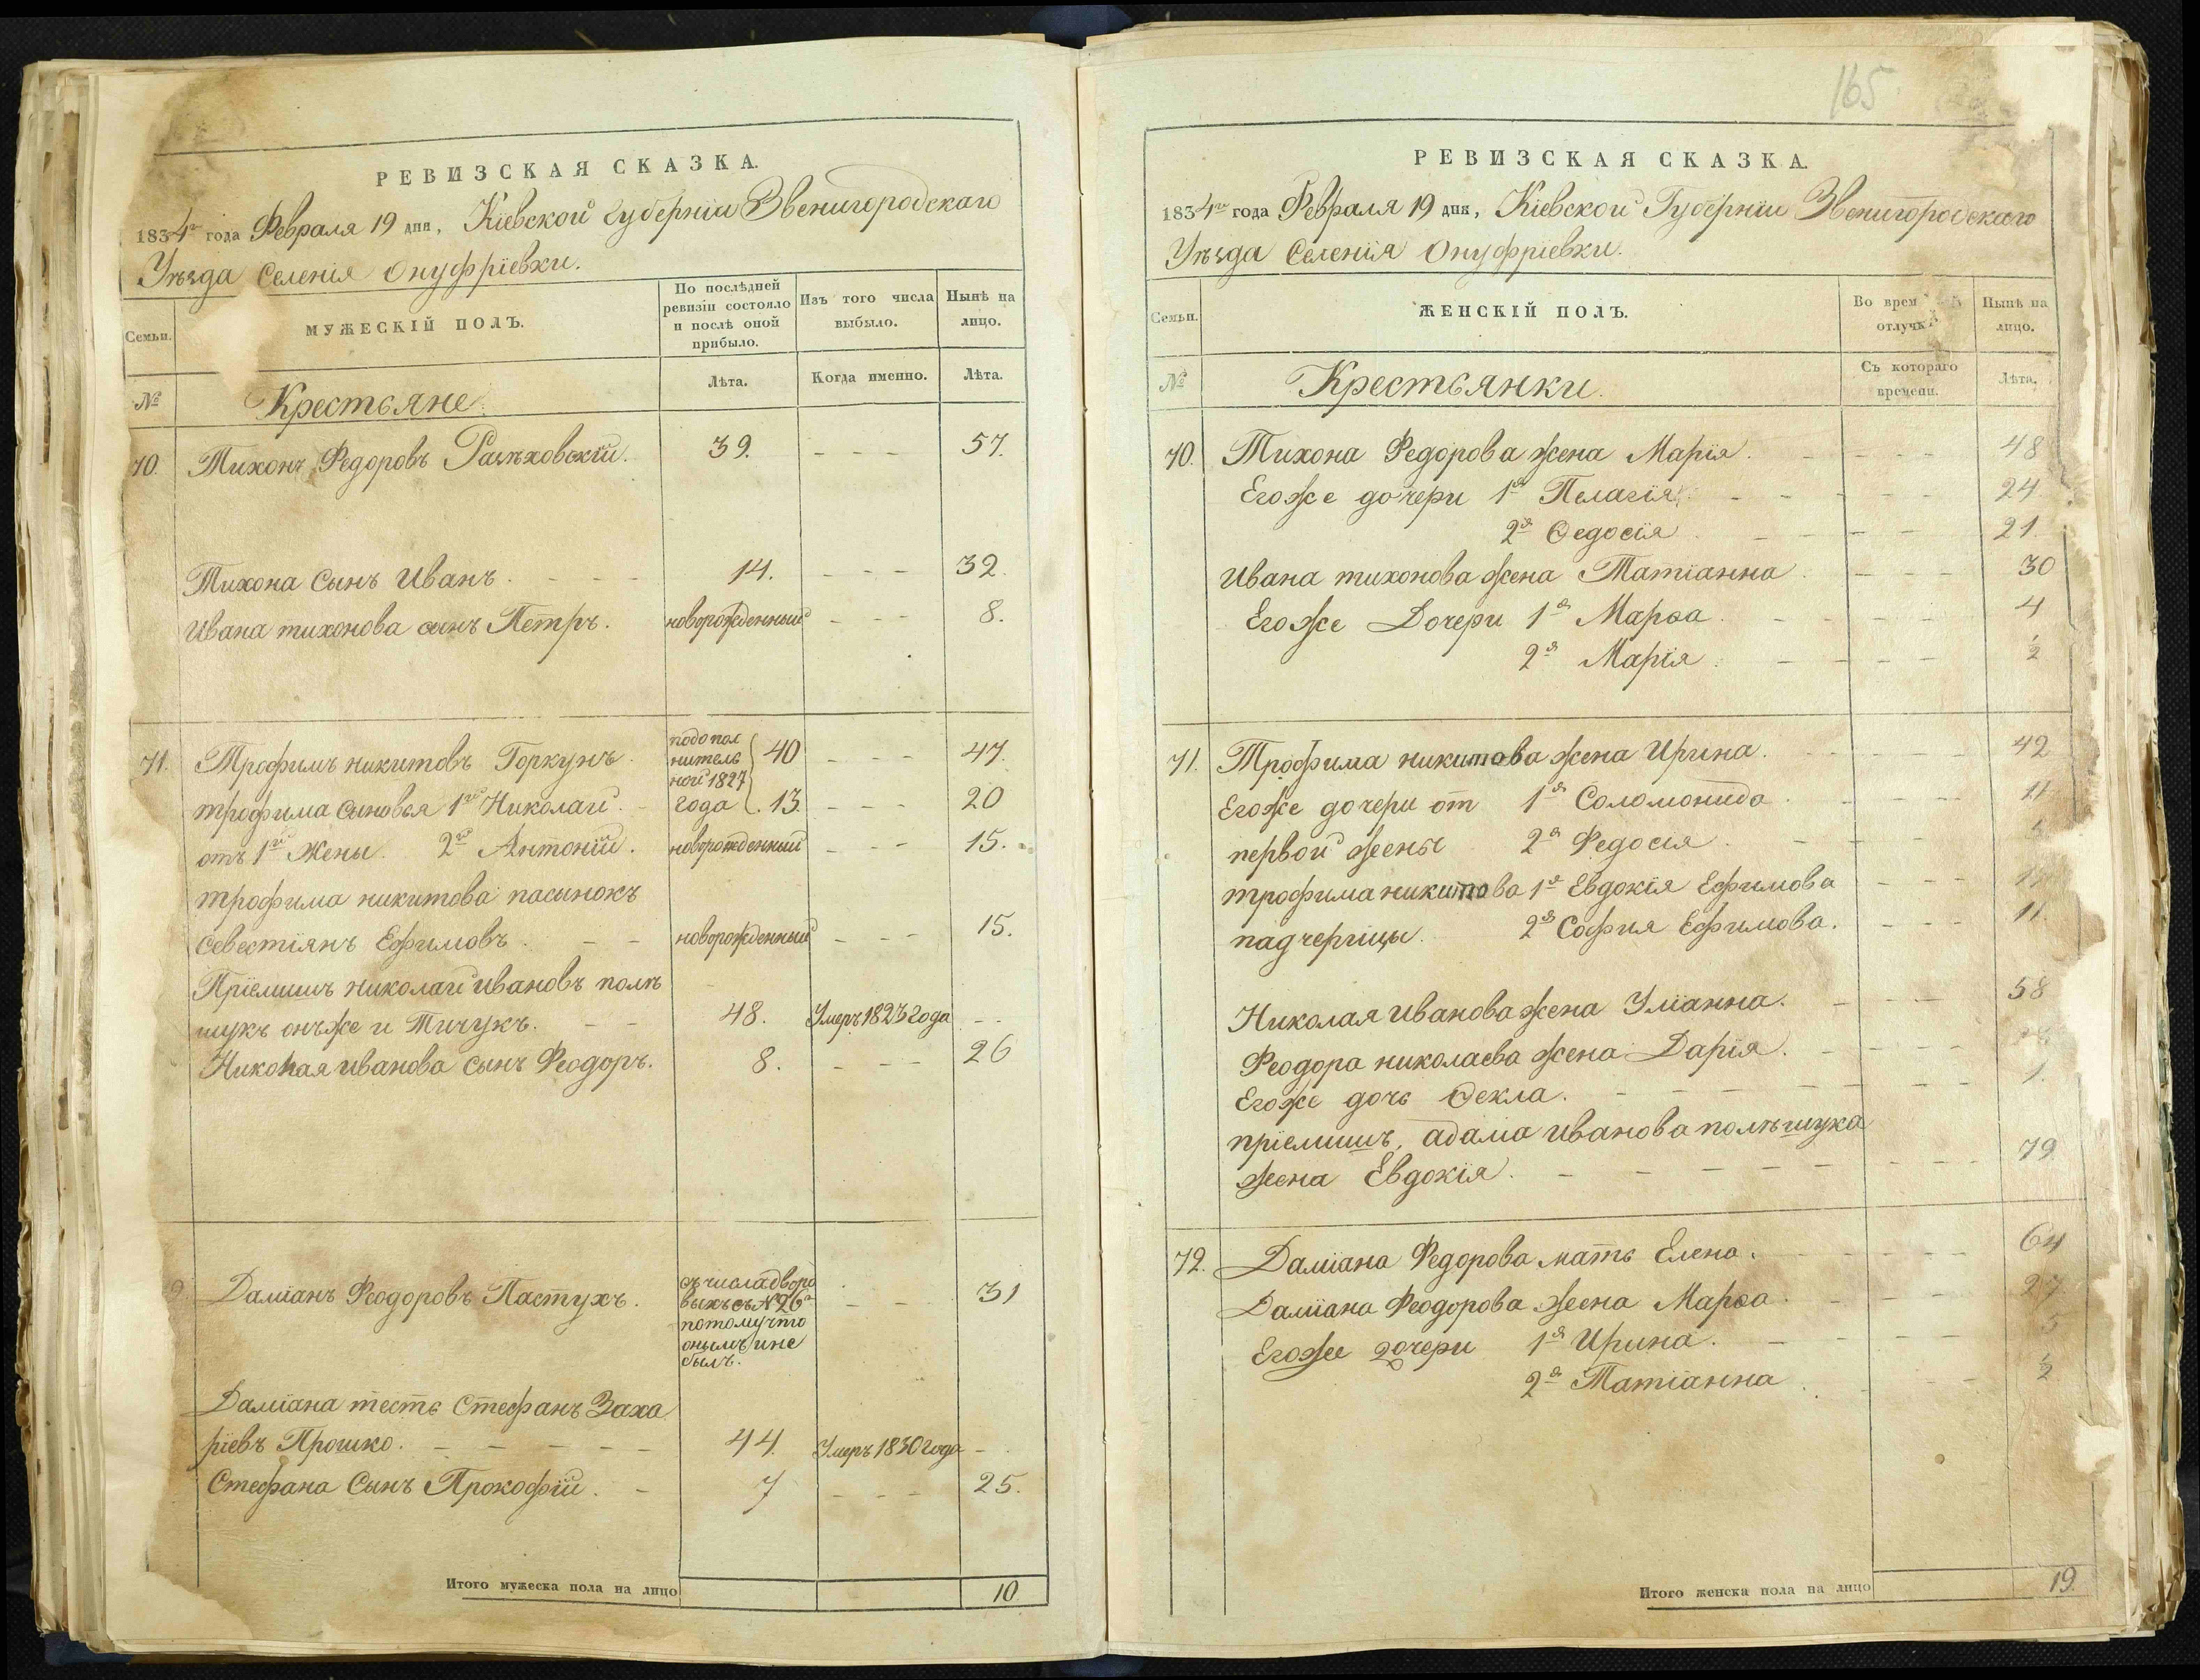 РЕВИЗСКАЯ СКАЗКА.
1834го года Февраля 19 дня, Кіевской Губерніи Звенигородскаго
Уѣзда Селенія Онуфріевки.
Семьи.
МУЖЕСКІЙ ПОЛЪ.
По послѣдней ревизіи состояло и послѣ оной прибыло.
Изъ того числа выбыло.
Нынѣ на лицо.
№
Крестьяне.
Лѣта.
Когда именно.
Лѣта.
70. Тихонъ Федоровъ 39. - - - 57.
Тихона Сынъ Иванъ. - - - 14. - - - 32.
Ивана тихонова сынъ Петръ. новорожденный - - - 8.
71. Трофимъ никитовъ Горкунъ. подопол
нитель
ной 1827
года 40 - - - 47.
трофима сыновья 1й Николай. - 13. - - - 20
отъ 1й Жены. 2й Антоній. новорожденный - - - 15.
трофима никитова пасынокъ
севестіянъ Ефимовъ. - - новорожденный - - - 15.
Пріемишъ николай ивановъ полѣ
шукъ онъже и Тичукъ. - - 48. Умеръ 1823 года - -
Николая иванова сынъ Феодоръ. 8. - - - 26
Даміанъ Феодоровъ Пастухъ. съ числа дворо
выхъ съ № 26го
потому что
былъ. - - 31
Даміана тесть Стефанъ Заха
ріевъ Прошко. - - - - - 44. Умеръ 1830 года -
Стефана Сынъ Прокофій. - 7 - - - 25.
Итого мужеска пола на лицо 10
165
РЕВИЗСКАЯ СКАЗКА.
1834го года Февраля 19 дня, Кіевской Губерніи Звенигородскаго
Уѣзда Селенія Онуфріевки.
Семьи.
ЖЕНСКІЙ ПОЛЪ.
Во врем
отлучк
Нынѣ на лицо.
№
Крестьянки.
Съ котораго времени.
Лѣта.
70. Тихона Федорова жена Марія. - - - - 48
Егоже дочери 1я Пелагія - - - - - 24
2я Ѳедосія. - - - - 21.
Ивана тихонова жена Татіанна. - - - 30
Егоже Дочери 1я Марѳа. - - - - - 4
2я Марія. - - - - ½
71. Трофима никитова жена Ирина. - - - - - 42
Егоже дочери от 1я Соломонида. - - - - 11
первой жены 2я Федосія. - - -
трофима никитова 1я Евдокія Ефимова - - -
падчерицы. 2я Софія Ефимова. - - - 11.
Николая иванова жена Уліанна. - - - - 58
Феодора николаева жена Дарія. - - - - -
Егоже дочь Ѳекла. - - - - - - - - 1.
пріемишъ, адама иванова полѣшука
жена Евдокія. - - - - - - - - - 79
72. Даміана Федорова мать Елена. - - - - - 64
Даміана Феодорова жена Марѳа. - - - - 27
Егоже дочери 1я Ирина. - - - - - 5
2я Татіанна. - - - ½
Итого женска пола на лицо 19.